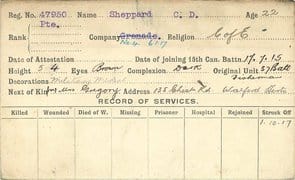 Reg. No. 47950 Name Sheppard C. D. Age 22
Rank Pte. Company Grenade. Religion C of E
No. 4 6.1.17
Date of Attestation Date of joining 15th Can. Battn. 17.7.15
Height 5 4 Eyes Brown Complexion Dark Original Unit 37 Batt
Decorations Military Medal Fisherman
Next of Kin Mrs Gregory Address 135 Chest Rd Watford Herts
RECORD OF SERVICES.
Killed Wounded Died of W. Missing Prisoner Hospital Rejoined Struck Off
1.10.17